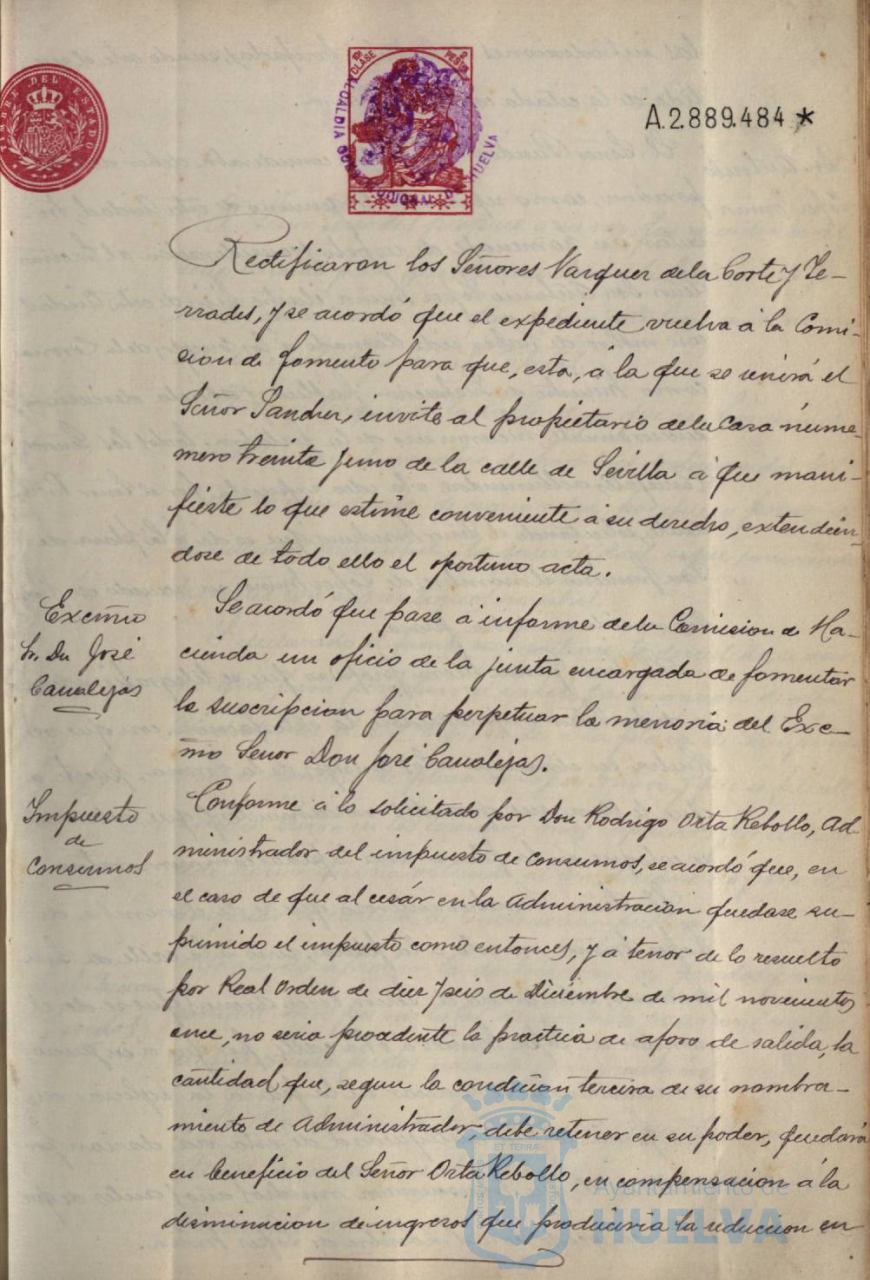 TIMBRE DEL ESTADO
CLASE PESETA
ALCALDIA HUELVA
A.2.889.484 *
Rectificaron los Señores Vazquez de la Corte y Te-
rrades, y se acordó que el expediente vuelva á la Comi-
sion de fomento para que, esta, á la que se unirá el
Señor Sanchez, invite al propietario de la casa núme-
mero treinta y uno de la calle de Sevilla á que mani-
fieste lo que estime conveniente á su derecho, extendién-
dose de todo ello el oportuno acta.
Excmo
Sr. Dn José
Canalejas
Se acordó que pase á informe de la Comision de Ha-
cienda un oficio de la junta encargada de fomentar
la suscripcion para perpetuar la memoria del Exc-
mo Señor Don José Canalejas.
Impuesto
de
Consumos
Conforme á lo solicitado por Don Rodrigo Orta Rebollo, Ad
ministrador del impuesto de consumos, se acordó que, en
el caso de que al cesár en la Administracion quedase su-
primido el impuesto como entonces, y á tenor de lo resuelto
por Real Orden de diez y seis de Diciembre de mil novecientos
once, no seria procedente la practica de aforo de salida, la
cantidad que, segun la condicion tercera de su nombra-
miento de Administrador, debe retener en su poder, quedará
en beneficio del Señor Orta Rebollo, en compensacion á la
disminucion de ingresos que produciria la reduccion en
Ayuntamiento de
HUELVA